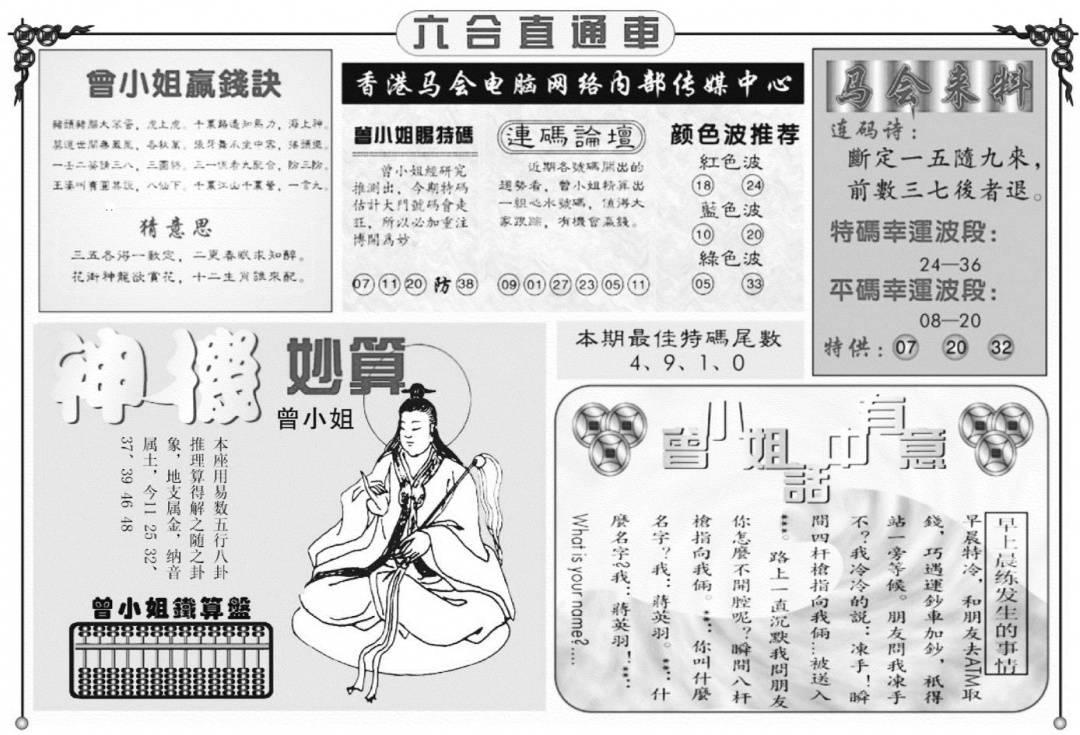 六合直通車
曾小姐贏錢訣
豬頭豬腦大笨蛋，虎上虎。千里路遙知馬力，海上神。
莫道世間無鳳凰，各秋萬。張牙舞爪坐中容，
猜意思
三五各得一數定，二更春眠求知醉。
花街神龍欲賞花，十二生肖誰來配。
香港马会电脑网络内部传媒中心
曾小姐賜特碼
曾小姐經研究
推測出，今期特码
估計大門號碼會走
旺，所以必加重注
博開爲妙。
07 11 20 防 38
連碼論壇
近期各號碼開出的
趨勢看，曾小姐精算出
一組心水號碼，值得大
家跟踪，有機會贏錢。
09 01 27 23 05 11
颜色波推荐
紅色波
18 24
藍色波
10 20
綠色波
05 33
马会来料
连码诗：
斷定一五隨九來，
前數三七後者退。
特碼幸運波段：
24—36
平碼幸運波段：
08—20
特供：07 20 32
本期最佳特碼尾數
4、9、1、0
神機妙算
曾小姐
本座用易数五行八卦
推理算得解之随之卦
象，地支属金，纳音
属土，今11 25 32、
37、39 46 48
曾小姐鐵算盤
曾小姐話中有意
早上晨练发生的事情
早晨特冷，和朋友去ATM取
錢，巧遇運鈔車加鈔，祇得
站一旁等候。朋友問我凍手
不？我冷冷的說：凍手！瞬
間四杆槍指向我倆…被送入
***。路上一直沉默我問朋友
你怎麼不開腔呢？瞬間八杆
槍指向我倆。**：你叫什麼
名字？我：蔣英羽。**：什
麼名字？我：蔣英羽！**：
What is your name?……